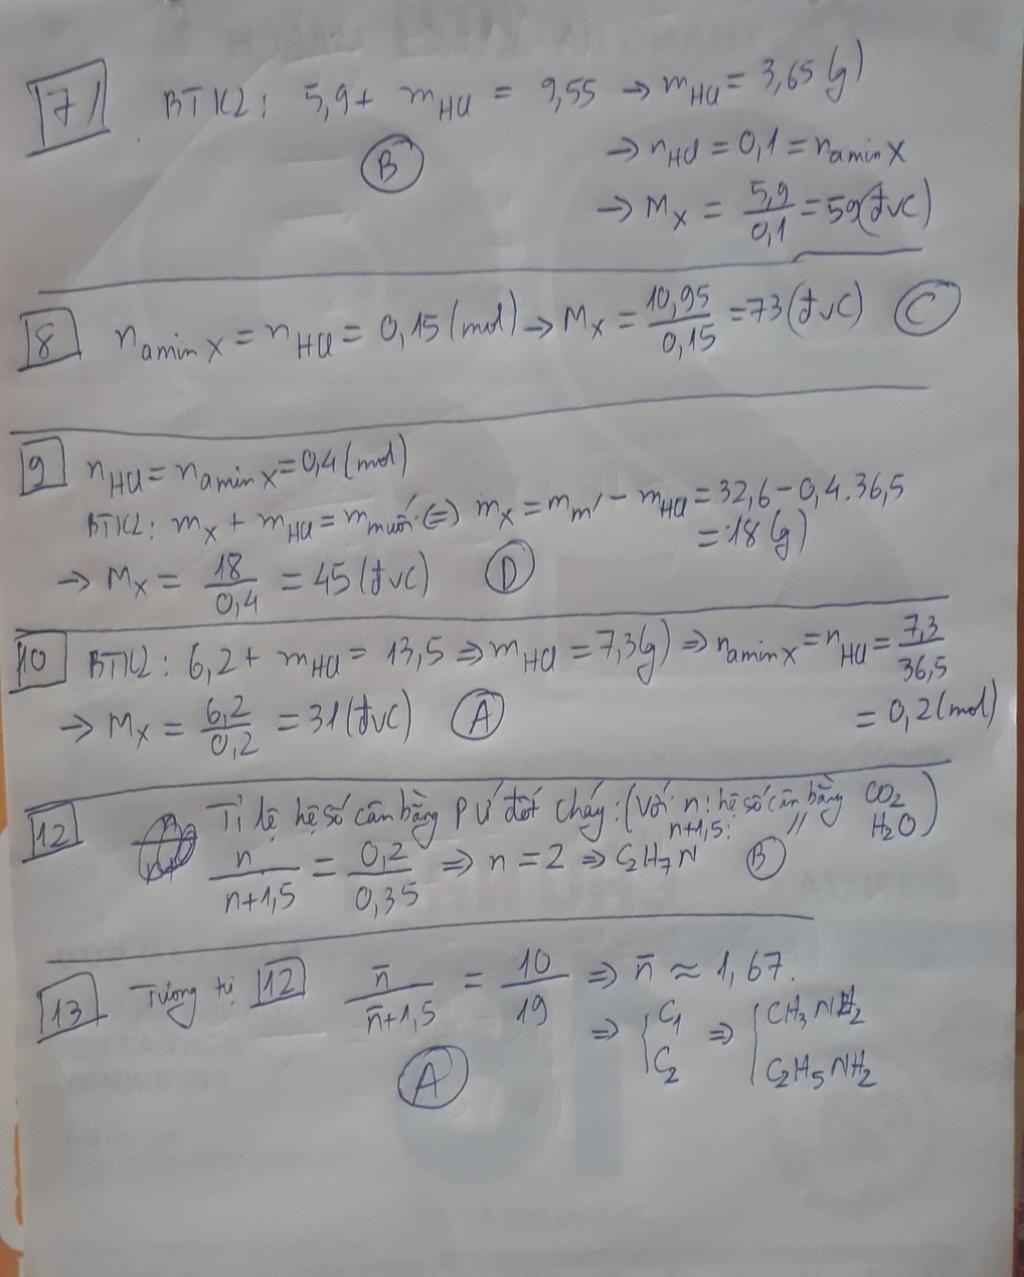 7
BTKL: 5,9 + mHCl = 9,55 → mHCl = 3,65 (g)
B
→ nHCl = 0,1 = namin X
→ MX = 5,9/0,1 = 59 (đvC)
8
namin X = nHCl = 0,15 (mol) → MX = 10,95/0,15 = 73 (đvC) C
9 nHCl = namin X = 0,4 (mol)
BTKL: mX + mHCl = mmuối (=) mX = mm' - mHCl = 32,6 - 0,4.36,5
= 18 (g)
→ MX = 18/0,4 = 45 (đvC) D
10 BTKL: 6,2 + mHCl = 13,5 ⇒ mHCl = 7,3 g) ⇒ namin X = nHCl = 7,3/36,5
= 0,2 (mol)
→ MX = 6,2/0,2 = 31 (đvC) A
12 Tỉ lệ hệ số cân bằng PƯ đốt cháy: (Với n: hệ số cân bằng CO2
n+1,5: // H2O)
n/n+1,5 = 0,2/0,35 ⇒ n = 2 ⇒ C2H7N B
13 Tương tự 12 n̄/n̄+1,5 = 10/19 ⇒ n̄ ≈ 1,67.
⇒ { C1 ⇒ { CH3NH2
C2 C2H5NH2
A